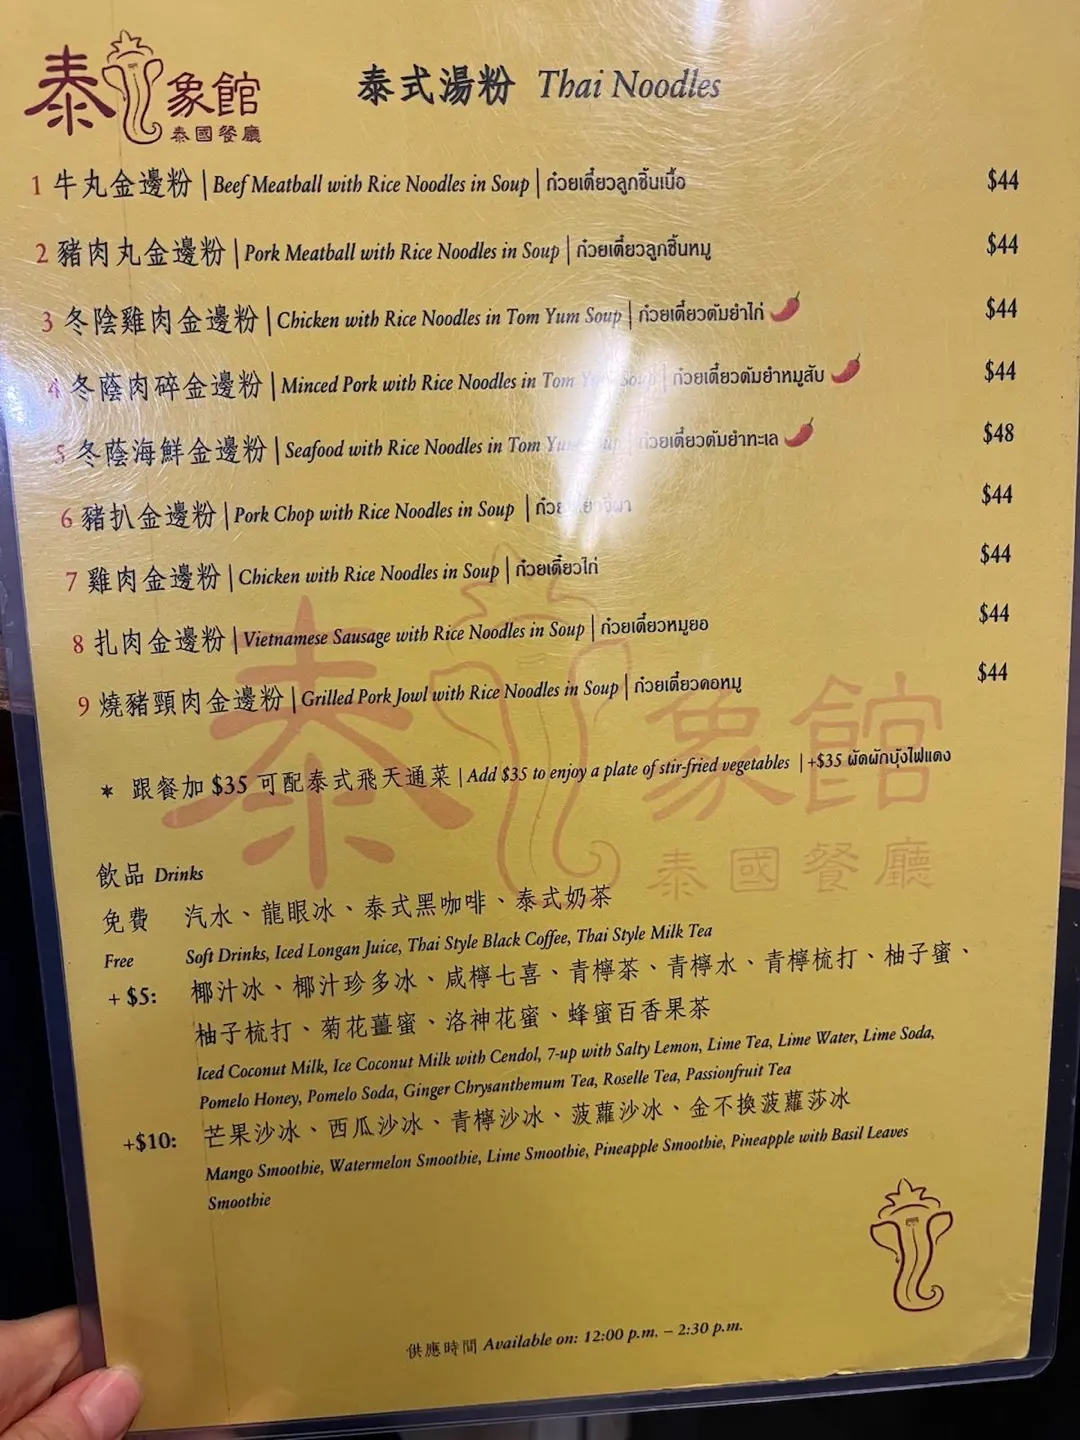 泰象館
泰國餐廳
泰式湯粉 Thai Noodles
1 牛丸金邊粉 | Beef Meatball with Rice Noodles in Soup | ก๋วยเตี๋ยวลูกชิ้นเนื้อ $44
2 豬肉丸金邊粉 | Pork Meatball with Rice Noodles in Soup | ก๋วยเตี๋ยวลูกชิ้นหมู $44
3 冬陰雞肉金邊粉 | Chicken with Rice Noodles in Tom Yum Soup | ก๋วยเตี๋ยวต้มยำไก่ $44
4 冬蔭肉碎金邊粉 | Minced Pork with Rice Noodles in Tom Yum Soup | ก๋วยเตี๋ยวต้มยำหมูสับ $44
5 冬蔭海鮮金邊粉 | Seafood with Rice Noodles in Tom Yum Soup | ก๋วยเตี๋ยวต้มยำทะเล $48
6 豬扒金邊粉 | Pork Chop with Rice Noodles in Soup | $44
7 雞肉金邊粉 | Chicken with Rice Noodles in Soup | ก๋วยเตี๋ยวไก่ $44
8 扎肉金邊粉 | Vietnamese Sausage with Rice Noodles in Soup | ก๋วยเตี๋ยวหมูยอ $44
9 燒豬頸肉金邊粉 | Grilled Pork Jowl with Rice Noodles in Soup | ก๋วยเตี๋ยวคอหมู $44
泰象館
泰國餐廳
* 跟餐加 $35 可配泰式飛天通菜 | Add $35 to enjoy a plate of stir-fried vegetables | +$35 ผัดผักบุ้งไฟแดง
飲品 Drinks
免費 汽水、龍眼冰、泰式黑咖啡、泰式奶茶
Free Soft Drinks, Iced Longan Juice, Thai Style Black Coffee, Thai Style Milk Tea
+ $5: 椰汁冰、椰汁珍多冰、咸檸七喜、青檸茶、青檸水、青檸梳打、柚子蜜、
柚子梳打、菊花薑蜜、洛神花蜜、蜂蜜百香果茶
Iced Coconut Milk, Ice Coconut Milk with Cendol, 7-up with Salty Lemon, Lime Tea, Lime Water, Lime Soda,
Pomelo Honey, Pomelo Soda, Ginger Chrysanthemum Tea, Roselle Tea, Passionfruit Tea
+$10: 芒果沙冰、西瓜沙冰、青檸沙冰、菠蘿沙冰、金不換菠蘿莎冰
Mango Smoothie, Watermelon Smoothie, Lime Smoothie, Pineapple Smoothie, Pineapple with Basil Leaves
Smoothie
供應時間 Available on: 12:00 p.m. – 2:30 p.m.